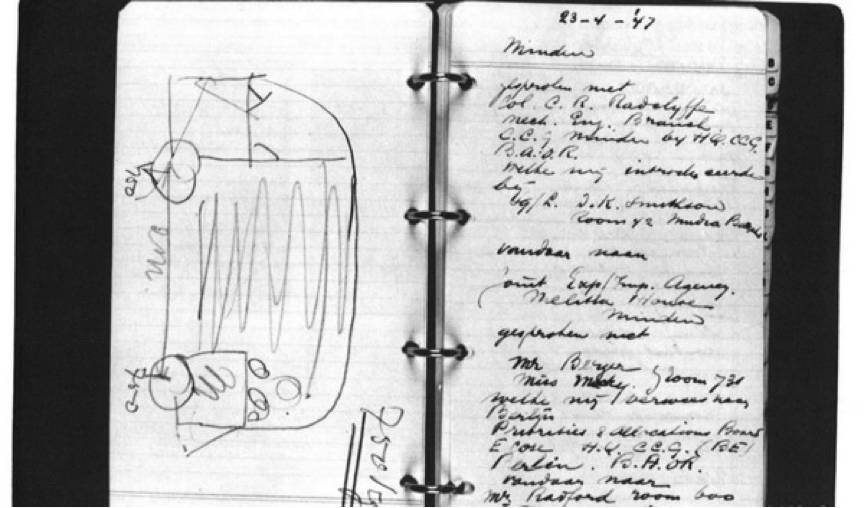 750
750
750 kg
23-4-'47
Minden
gesproken met
Col. C. R. Radclyffe
Mech. Eng. Branch
C.C.G. Minden by HQ. CCG.
B.A.O.R.
welke mij introduceerde
bij
Bg/L. J.K. Smithson
Room 42 Mudra
vandaar naar
Joint Exp/Imp. Agency.
Melitta House
Minden
gesproken met
Mr Berger
Miss room 731
welke mij verwees naar
Berlijn
Priorities & Allocations Board
H.Q. C.C.G. (BE)
Berlin. B.A.O.R.
vandaar naar
Mr Radford room 600